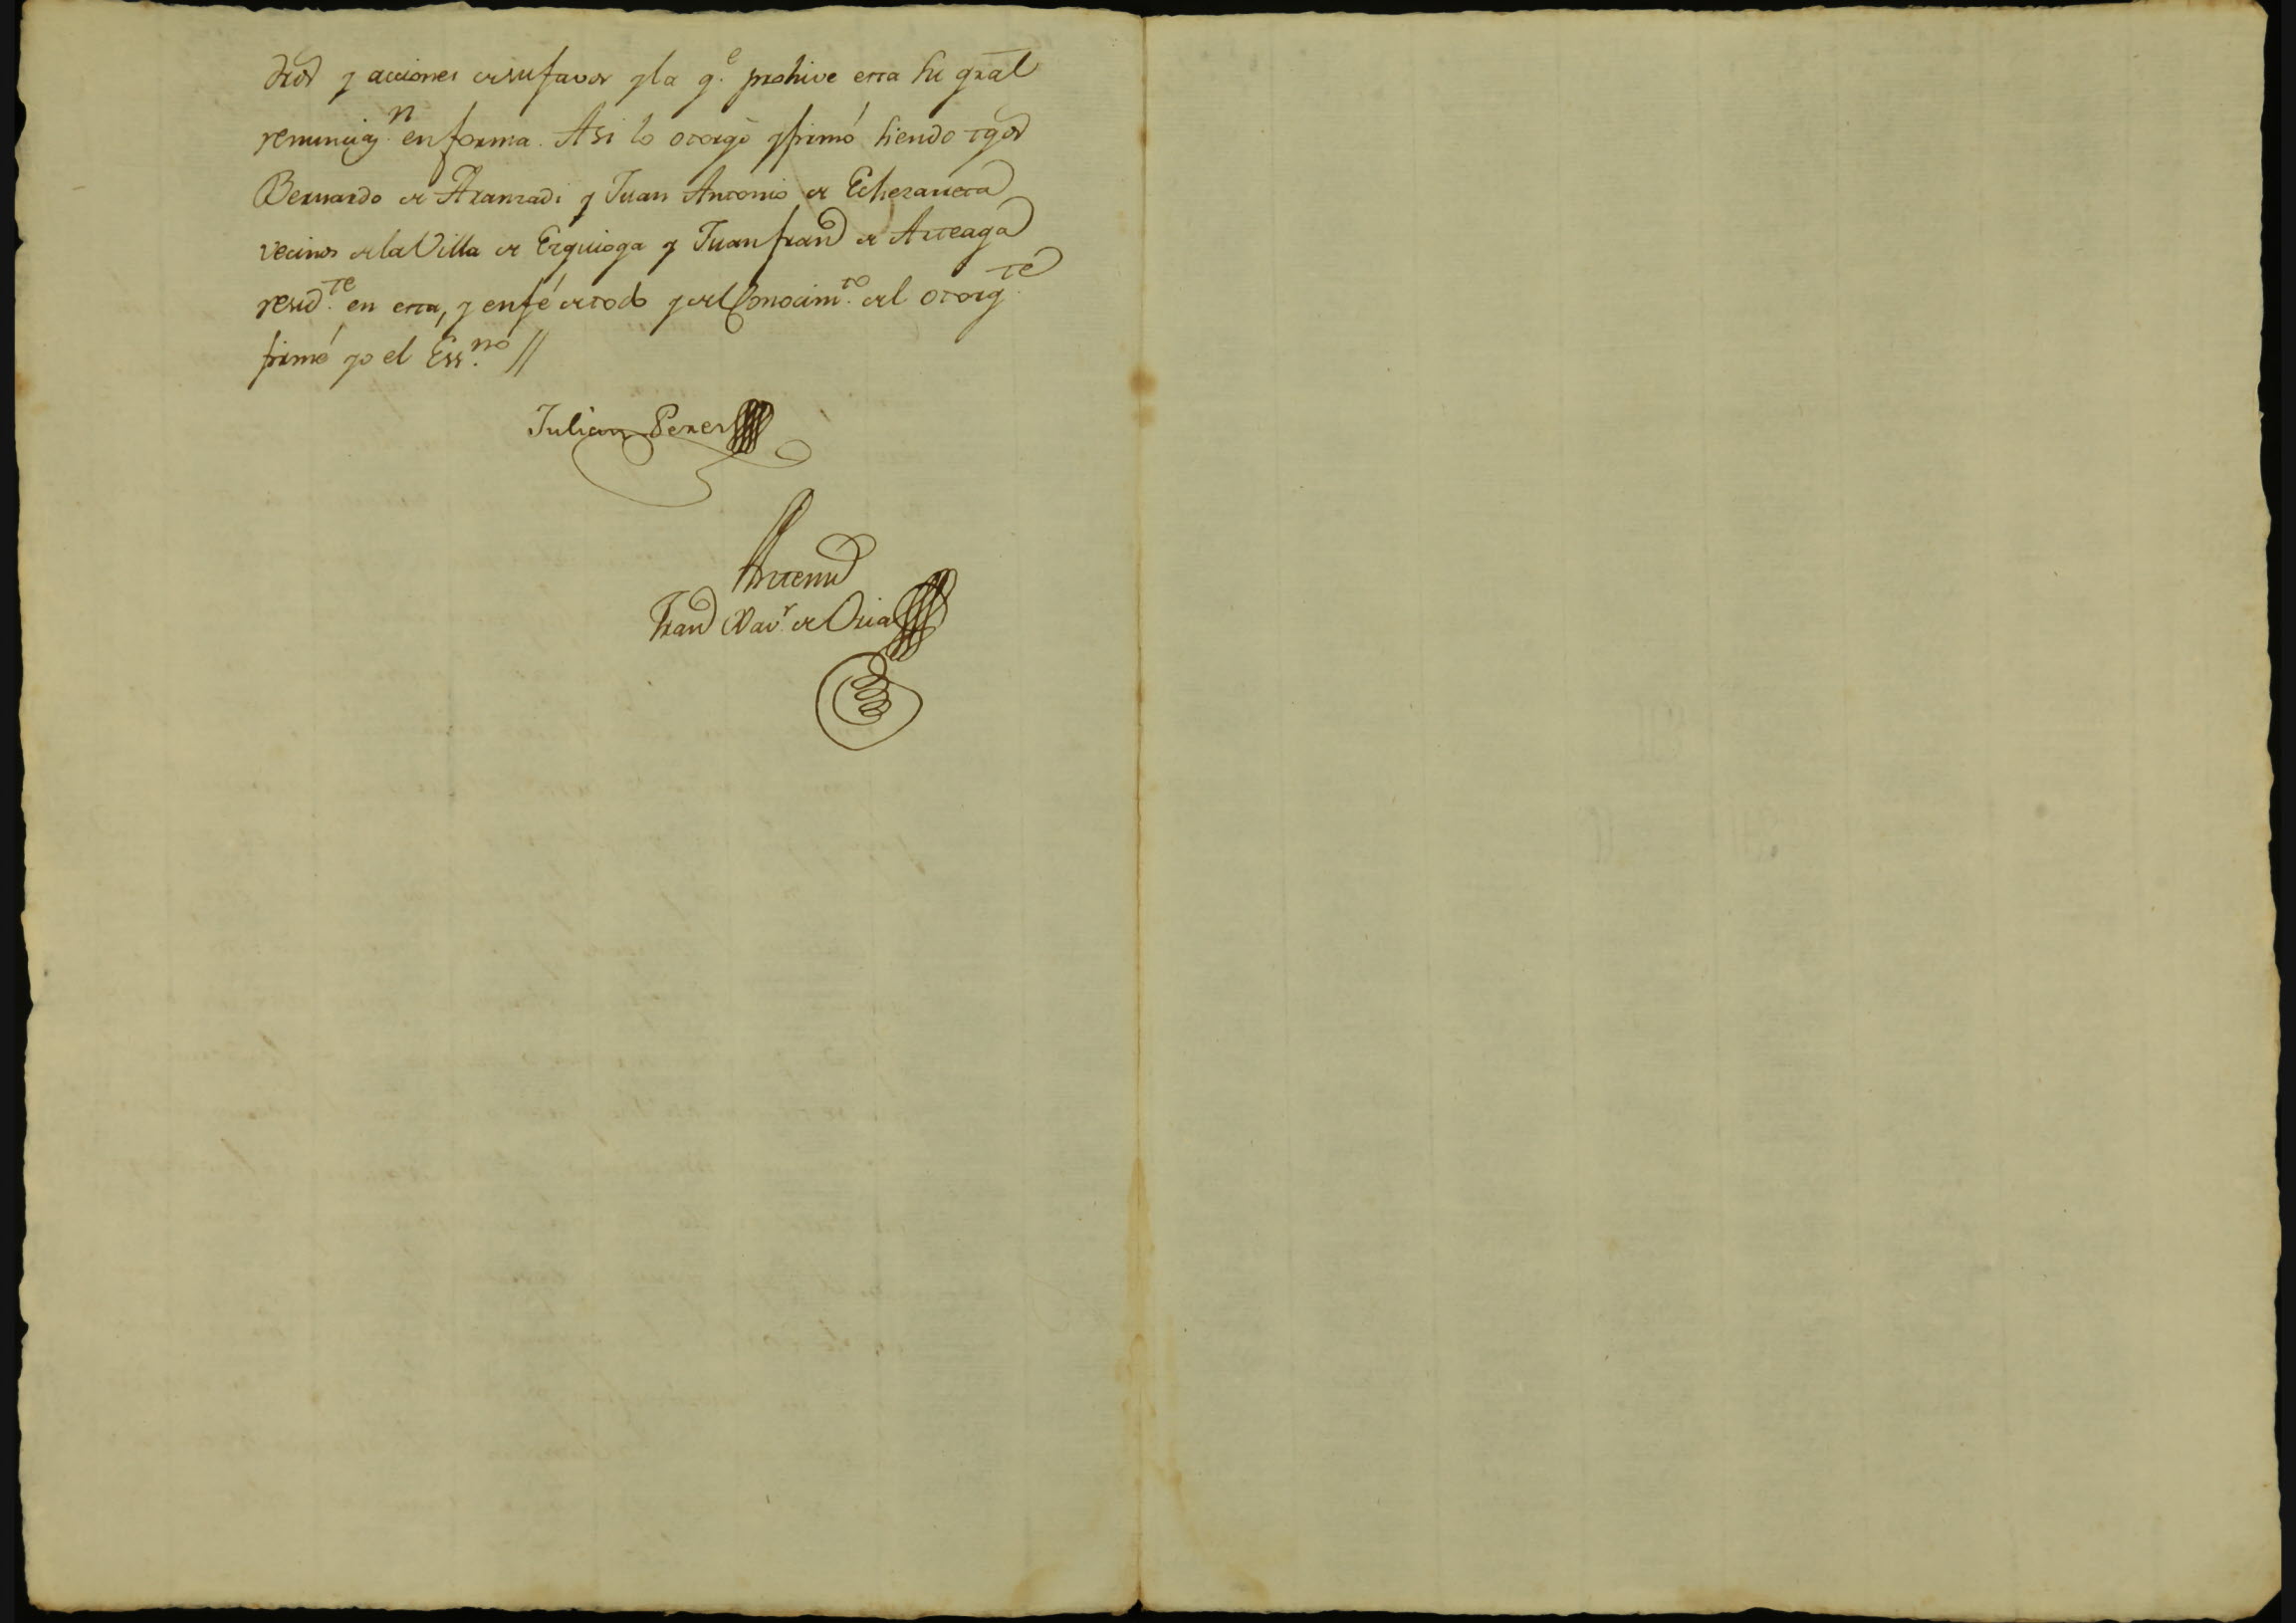 dros y acciones de su favor y la q.e prohive esta su gral
renunciaz.n en forma. Asi lo otorgó y firmó siendo tgos
Bernardo de Aranzadi y Juan Antonio de Echezarreta
vecinos de la Villa de Ezquioga y Juan Franco de Arteaga
resid.te en esta, y en fé de todo y del Conocim.to del otorg.te
firmé yo el Ess.no //
Julian Perez
Antemi
Franco Xav.r de Oria